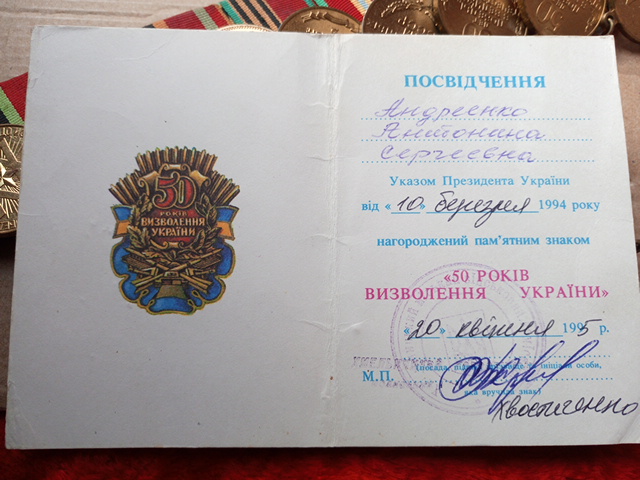 50
РОКІВ
ВИЗВОЛЕННЯ
УКРАЇНИ
ПОСВІДЧЕННЯ
Андреенко
Антонина
Сергеевна
Указом Президента України
від «10» березня 1994 року
нагороджений пам'ятним знаком
«50 РОКІВ
ВИЗВОЛЕННЯ УКРАЇНИ»
«20» квітня 1995 р.
М.П.
яка вручила знак)